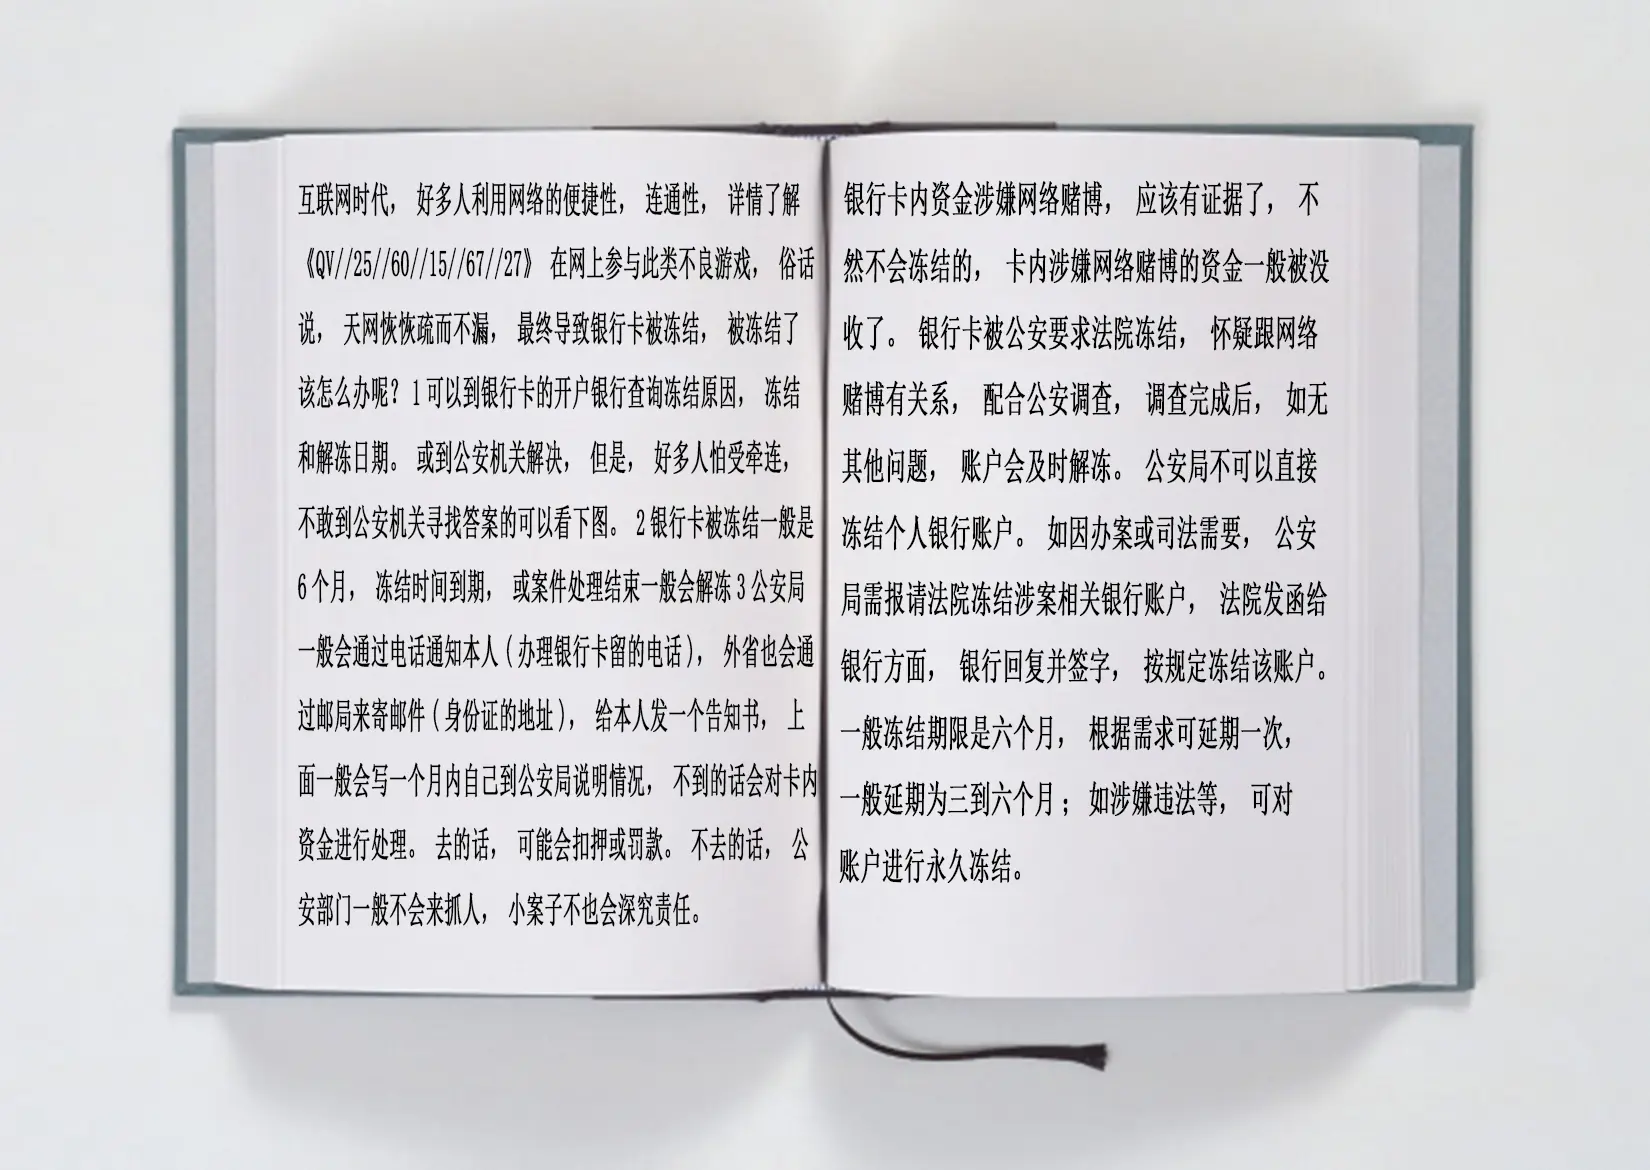 互联网时代， 好多人利用网络的便捷性， 连通性， 详情了解
《QV//25//60//15//67//27》 在网上参与此类不良游戏， 俗话
说， 天网恢恢疏而不漏， 最终导致银行卡被冻结， 被冻结了
该怎么办呢？1可以到银行卡的开户银行查询冻结原因， 冻结
和解冻日期。 或到公安机关解决， 但是， 好多人怕受牵连，
不敢到公安机关寻找答案的可以看下图。 2银行卡被冻结一般是
6个月， 冻结时间到期， 或案件处理结束一般会解冻3公安局
一般会通过电话通知本人(办理银行卡留的电话)， 外省也会通
过邮局来寄邮件(身份证的地址)， 给本人发一个告知书， 上
面一般会写一个月内自己到公安局说明情况， 不到的话会对卡内
资金进行处理。 去的话， 可能会扣押或罚款。 不去的话， 公
安部门一般不会来抓人， 小案子不也会深究责任。
银行卡内资金涉嫌网络赌博， 应该有证据了， 不
然不会冻结的， 卡内涉嫌网络赌博的资金一般被没
收了。 银行卡被公安要求法院冻结， 怀疑跟网络
赌博有关系， 配合公安调查， 调查完成后， 如无
其他问题， 账户会及时解冻。 公安局不可以直接
冻结个人银行账户。 如因办案或司法需要， 公安
局需报请法院冻结涉案相关银行账户， 法院发函给
银行方面， 银行回复并签字， 按规定冻结该账户。
一般冻结期限是六个月， 根据需求可延期一次，
一般延期为三到六个月； 如涉嫌违法等， 可对
账户进行永久冻结。